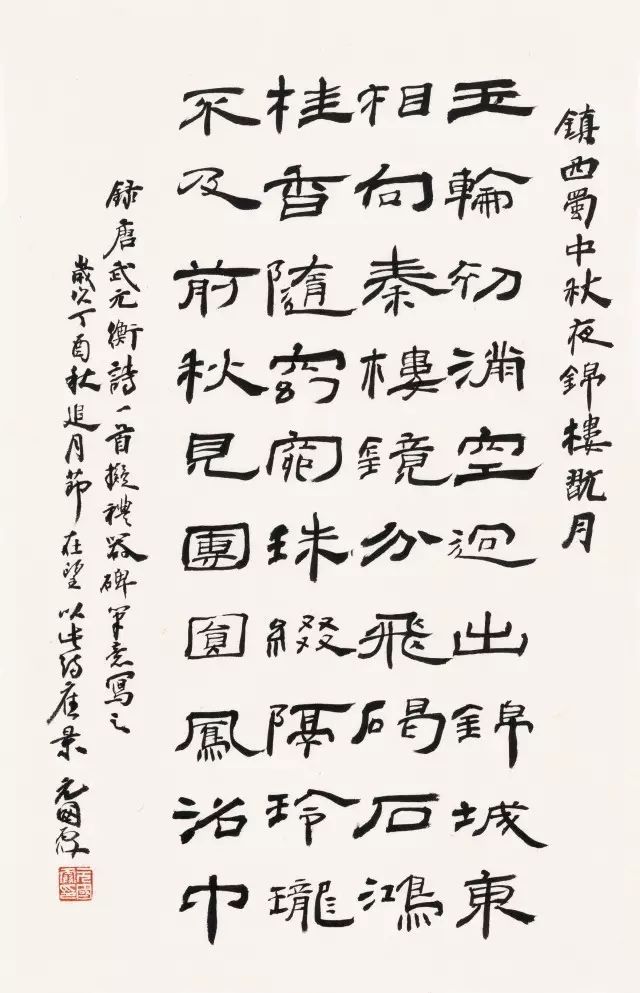 鎮西蜀中秋夜錦樓翫月
玉輪初滿空迥出錦城東
相向秦樓鏡分飛碣石鴻
桂香隨窈窕珠綴隔玲瓏
不及前秋見團圓鳳沼中
録唐武元衡詩一首擬禮器碑筆意寫之
歲次丁酉秋追月節在望以此詩應景 元國